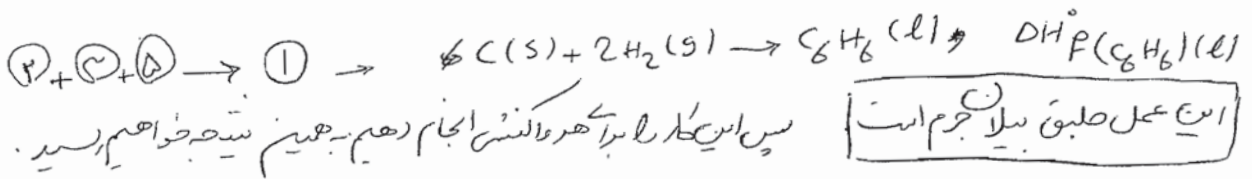 ③ + ④ + ⑤ → ① → 6 C(s) + 2H₂(g) → C₆H₆(l), ΔH°f(C₆H₆)(l)
این عمل طبق بیلان جرم است
پس این کار را برای هر واکنشی انجام دهیم به همین نتیجه خواهیم رسید.